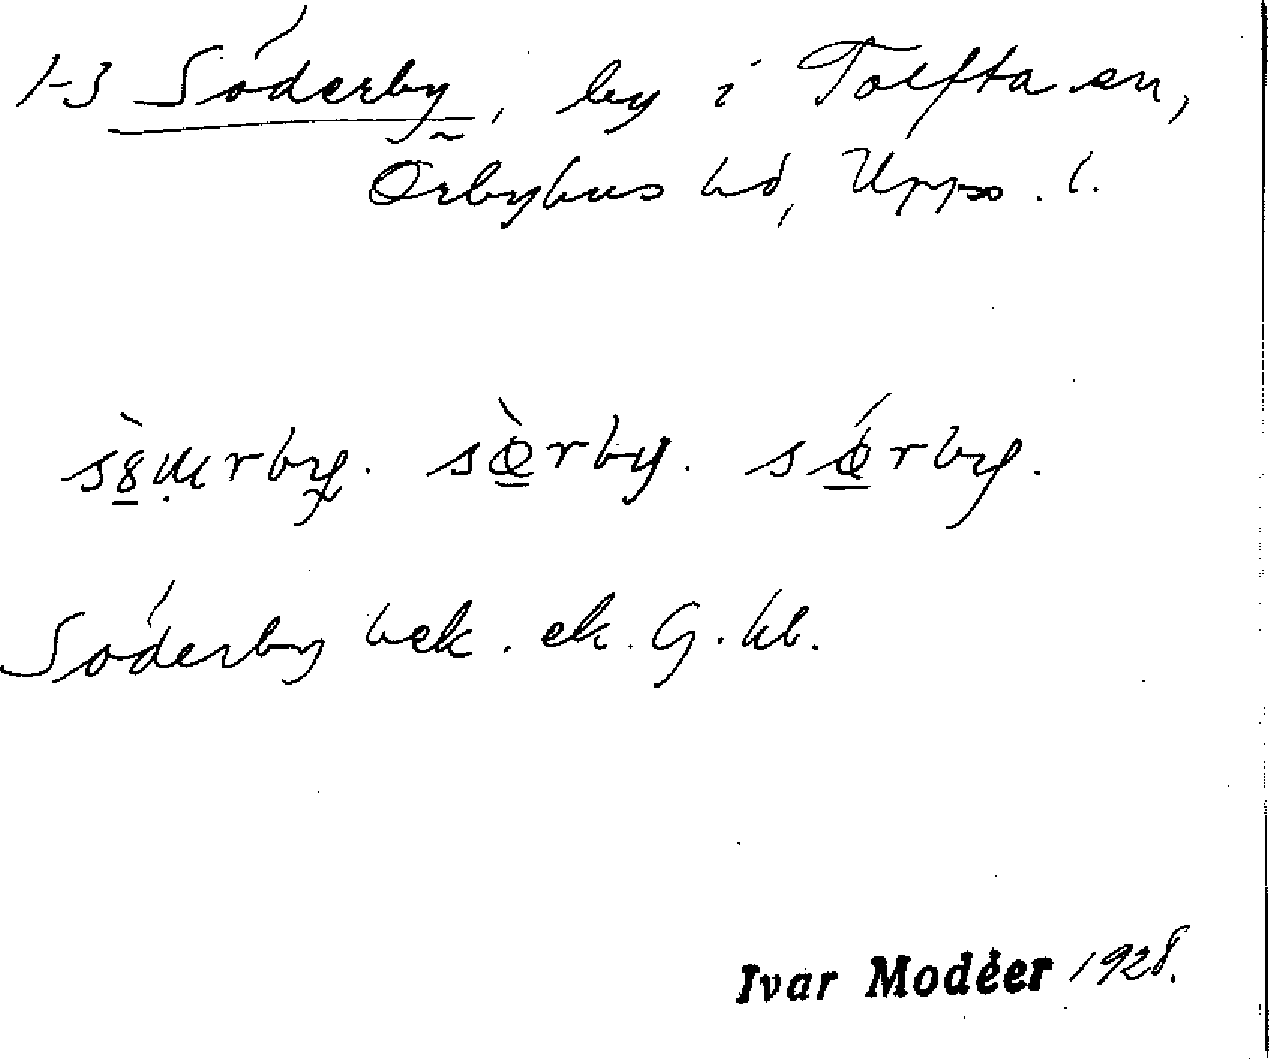 1-3 Söderby, by i Tolfta sn,
Örbyhus hd, Upps. l.
sœ̀rby. sǿrby.
Söderby bek. ek. G. kb.
Ivar Modéer 1928.